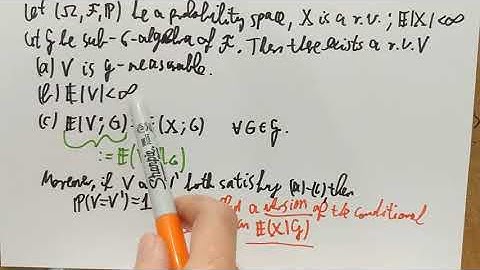 Let (Ω, F, ℙ) be a probability space, X is a r.v.; 𝔼|X|<∞
Let G be sub-σ-algebra of F. Then there exists a r.v. V
(a) V is G-measurable.
(b) 𝔼|V|<∞
(c) 𝔼(V; G) (X; G) ∀G∈G.
:= 𝔼(
Moreover, if V both satisfy (a)-(c), then
ℙ(V=V')=1 a version of the conditional
𝔼(X|G)
Sharpie